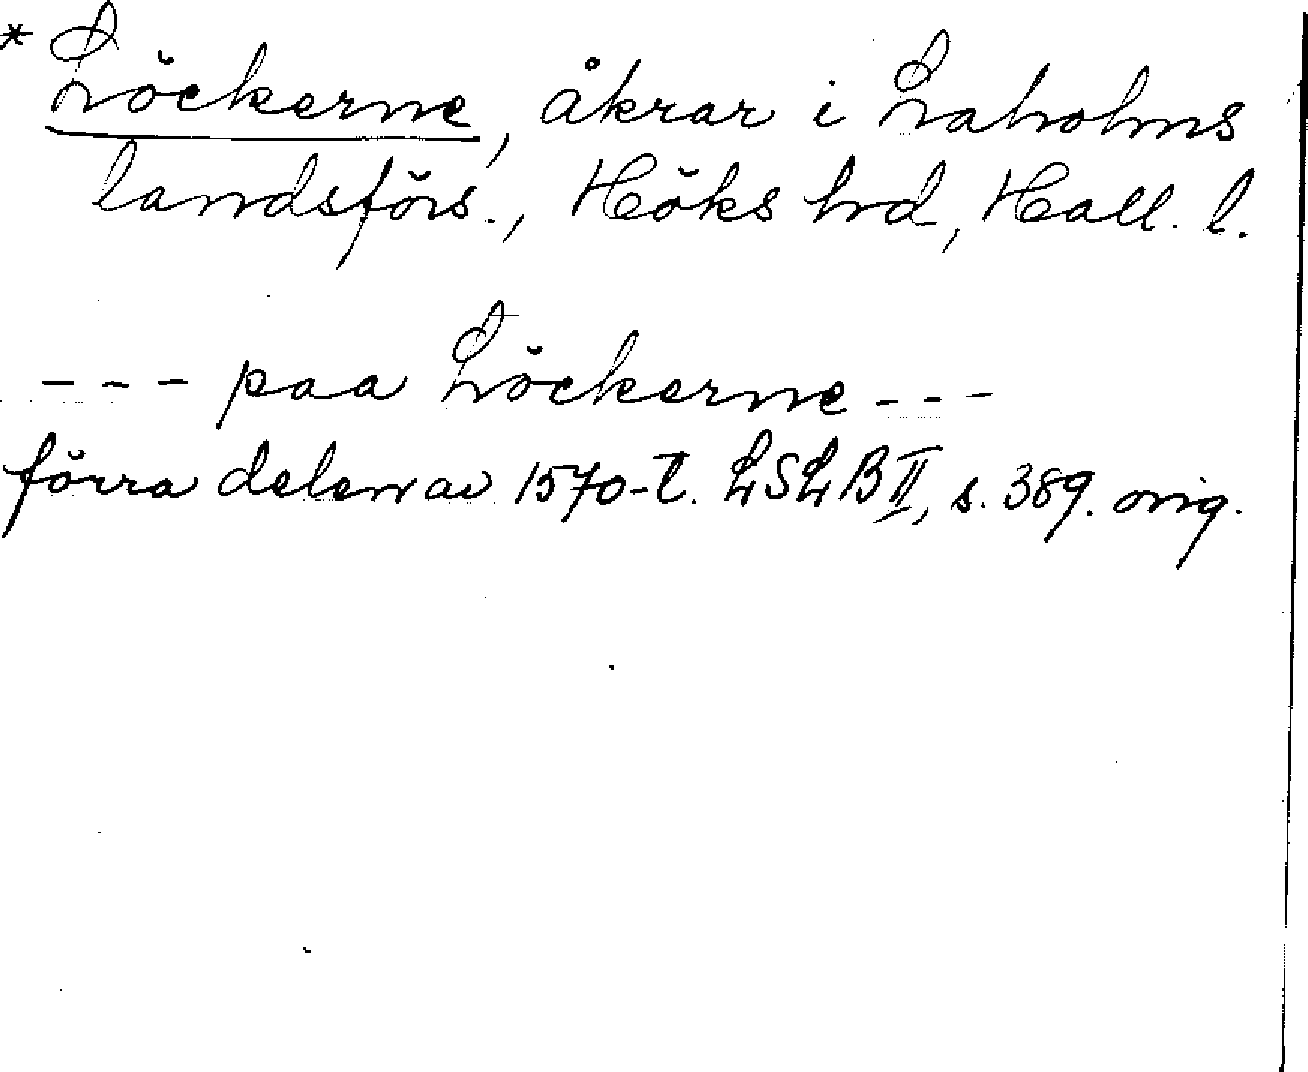 * Löckerne, åkrar i Laholms
landsförs., Höks hrd, Hall. l.
--- paa Löckerne ---
förra delen av 1570-t. LSLB II, s. 389. orig.